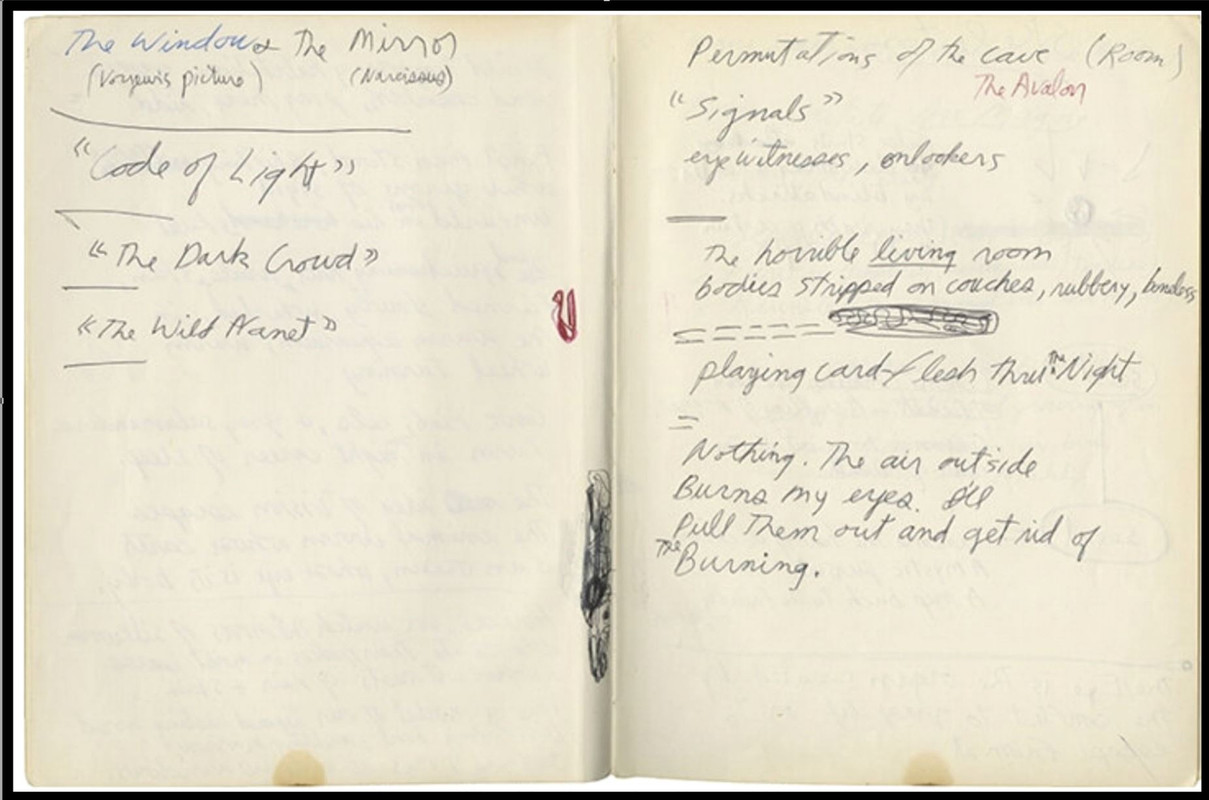 The Window & The Mirror
(Voyeur's picture) (Narcissus)
"Code of Light"
"The Dark Crowd"
"The Wild Planet"
Permutations of the cave (Room)
The Avalon
"Signals"
eyewitnesses, onlookers
The horrible living room
bodies stripped on couches, rubbery, boneless
playing card flesh thru the Night
=
Nothing. The air outside
Burns my eyes. I'll
Pull Them out and get rid of
The Burning.